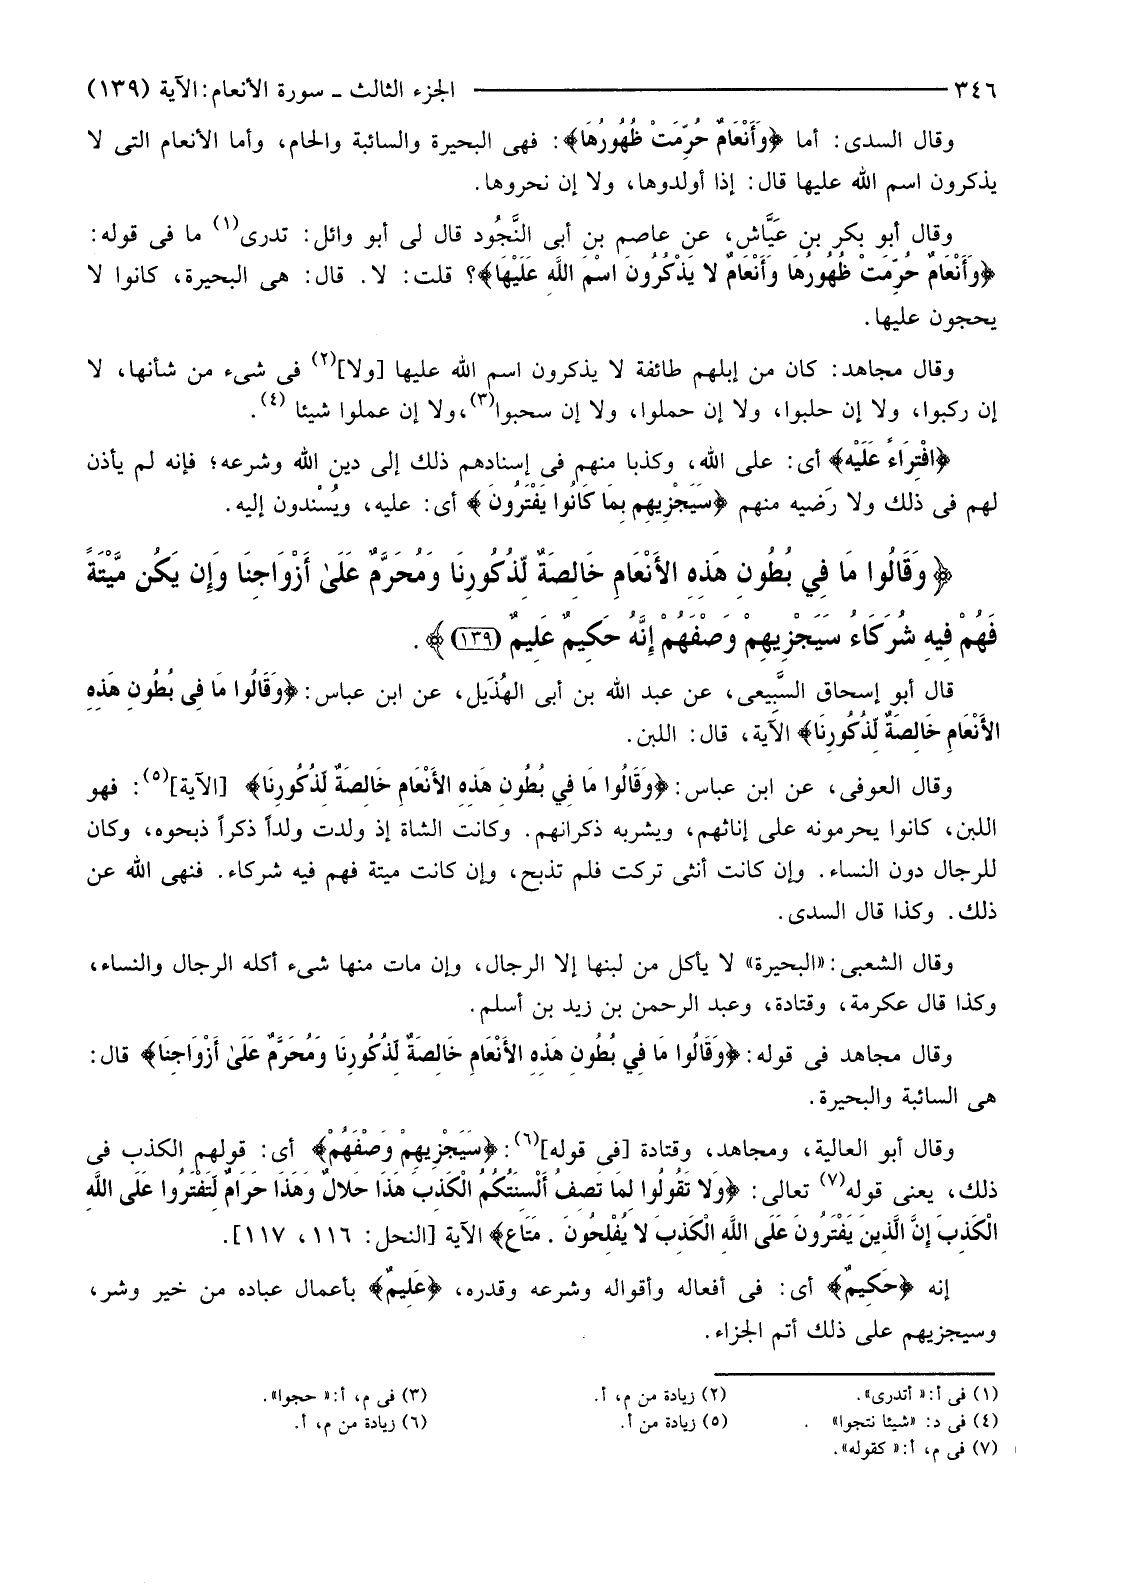 ٣٤٦ ــــــــــ الجزء الثالث ـ سورة الأنعام: الآية (١٣٩)
وقال السدى: أما ﴿وَأَنْعَامٌ حُرِّمَتْ ظُهُورُهَا﴾: فهى البحيرة والسائبة والحام، وأما الأنعام التى لا
يذكرون اسم الله عليها قال: إذا أولدوها، ولا إن نحروها.
وقال أبو بكر بن عَيَّاش، عن عاصم بن أبى النَّجُود قال لى أبو وائل: تدرى(١) ما فى قوله:
﴿وَأَنْعَامٌ حُرِّمَتْ ظُهُورُهَا وَأَنْعَامٌ لا يَذْكُرُونَ اسْمَ اللَّهِ عَلَيْهَا﴾؟ قلت: لا. قال: هى البحيرة، كانوا لا
يحجون عليها.
وقال مجاهد: كان من إبلهم طائفة لا يذكرون اسم الله عليها [ولا](٢) فى شىء من شأنها، لا
إن ركبوا، ولا إن حلبوا، ولا إن حملوا، ولا إن سحبوا(٣)،ولا إن عملوا شيئا (٤).
﴿افْتِرَاءً عَلَيْهِ﴾ أى: على الله، وكذبا منهم فى إسنادهم ذلك إلى دين الله وشرعه؛ فإنه لم يأذن
لهم فى ذلك ولا رَضيه منهم ﴿سَيَجْزِيهِم بِمَا كَانُوا يَفْتَرُونَ﴾ أى: عليه، ويُسْندون إليه.
﴿وَقَالُوا مَا فِي بُطُونِ هَذِهِ الأَنْعَامِ خَالِصَةٌ لِّذُكُورِنَا وَمُحَرَّمٌ عَلَىٰ أَزْوَاجِنَا وَإِن يَكُن مَّيْتَةً
فَهُمْ فِيهِ شُرَكَاءُ سَيَجْزِيهِمْ وَصْفَهُمْ إِنَّهُ حَكِيمٌ عَلِيمٌ (١٣٩)﴾.
قال أبو إسحاق السَّبِيعى، عن عبد الله بن أبى الهُذَيل، عن ابن عباس: ﴿وَقَالُوا مَا فِى بُطُونِ هَذِهِ
الأَنْعَامِ خَالِصَةٌ لِّذُكُورِنَا﴾ الآية، قال: اللبن.
وقال العوفى، عن ابن عباس: ﴿وَقَالُوا مَا فِي بُطُونِ هَذِهِ الأَنْعَامِ خَالِصَةٌ لِّذُكُورِنَا﴾ [الآية](٥): فهو
اللبن، كانوا يحرمونه على إناثهم، ويشربه ذكرانهم. وكانت الشاة إذ ولدت ولداً ذكراً ذبحوه، وكان
للرجال دون النساء. وإن كانت أنثى تركت فلم تذبح، وإن كانت ميتة فهم فيه شركاء. فنهى الله عن
ذلك. وكذا قال السدى.
وقال الشعبى: «البحيرة» لا يأكل من لبنها إلا الرجال، وإن مات منها شىء أكله الرجال والنساء،
وكذا قال عكرمة، وقتادة، وعبد الرحمن بن زيد بن أسلم.
وقال مجاهد فى قوله: ﴿وَقَالُوا مَا فِي بُطُونِ هَذِهِ الأَنْعَامِ خَالِصَةٌ لِّذُكُورِنَا وَمُحَرَّمٌ عَلَىٰ أَزْوَاجِنَا﴾ قال:
هى السائبة والبحيرة.
وقال أبو العالية، ومجاهد، وقتادة [فى قوله](٦): ﴿سَيَجْزِيهِمْ وَصْفَهُمْ﴾ أى: قولهم الكذب فى
ذلك، يعنى قوله(٧) تعالى: ﴿وَلا تَقُولُوا لِمَا تَصِفُ أَلْسِنَتُكُمُ الْكَذِبَ هَذَا حَلالٌ وَهَذَا حَرَامٌ لِّتَفْتَرُوا عَلَى اللَّهِ
الْكَذِبَ إِنَّ الَّذِينَ يَفْتَرُونَ عَلَى اللَّهِ الْكَذِبَ لا يُفْلِحُونَ . مَتَاعٌ﴾ الآية [النحل: ١١٦، ١١٧].
إنه ﴿حَكِيمٌ﴾ أى: فى أفعاله وأقواله وشرعه وقدره، ﴿عَلِيمٌ﴾ بأعمال عباده من خير وشر،
وسيجزيهم على ذلك أتم الجزاء.
(١) فى أ: «أتدرى». (٢) زيادة من م، أ. (٣) فى م، أ: «حجوا».
(٤) فى د: «شيئا نتجوا» . (٥) زيادة من أ. (٦) زيادة من م، أ.
(٧) فى م، أ: «كقوله».